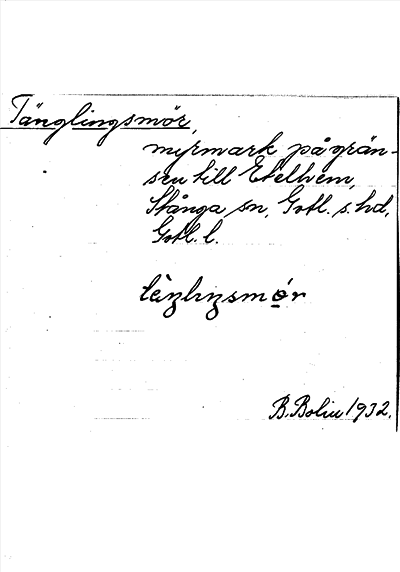 Tänglingsmör,
myrmark på grän-
sen till Etelhem,
Stånga sn, Gotl. s. hd,
Gotl. l.
B. Bolin 1932.